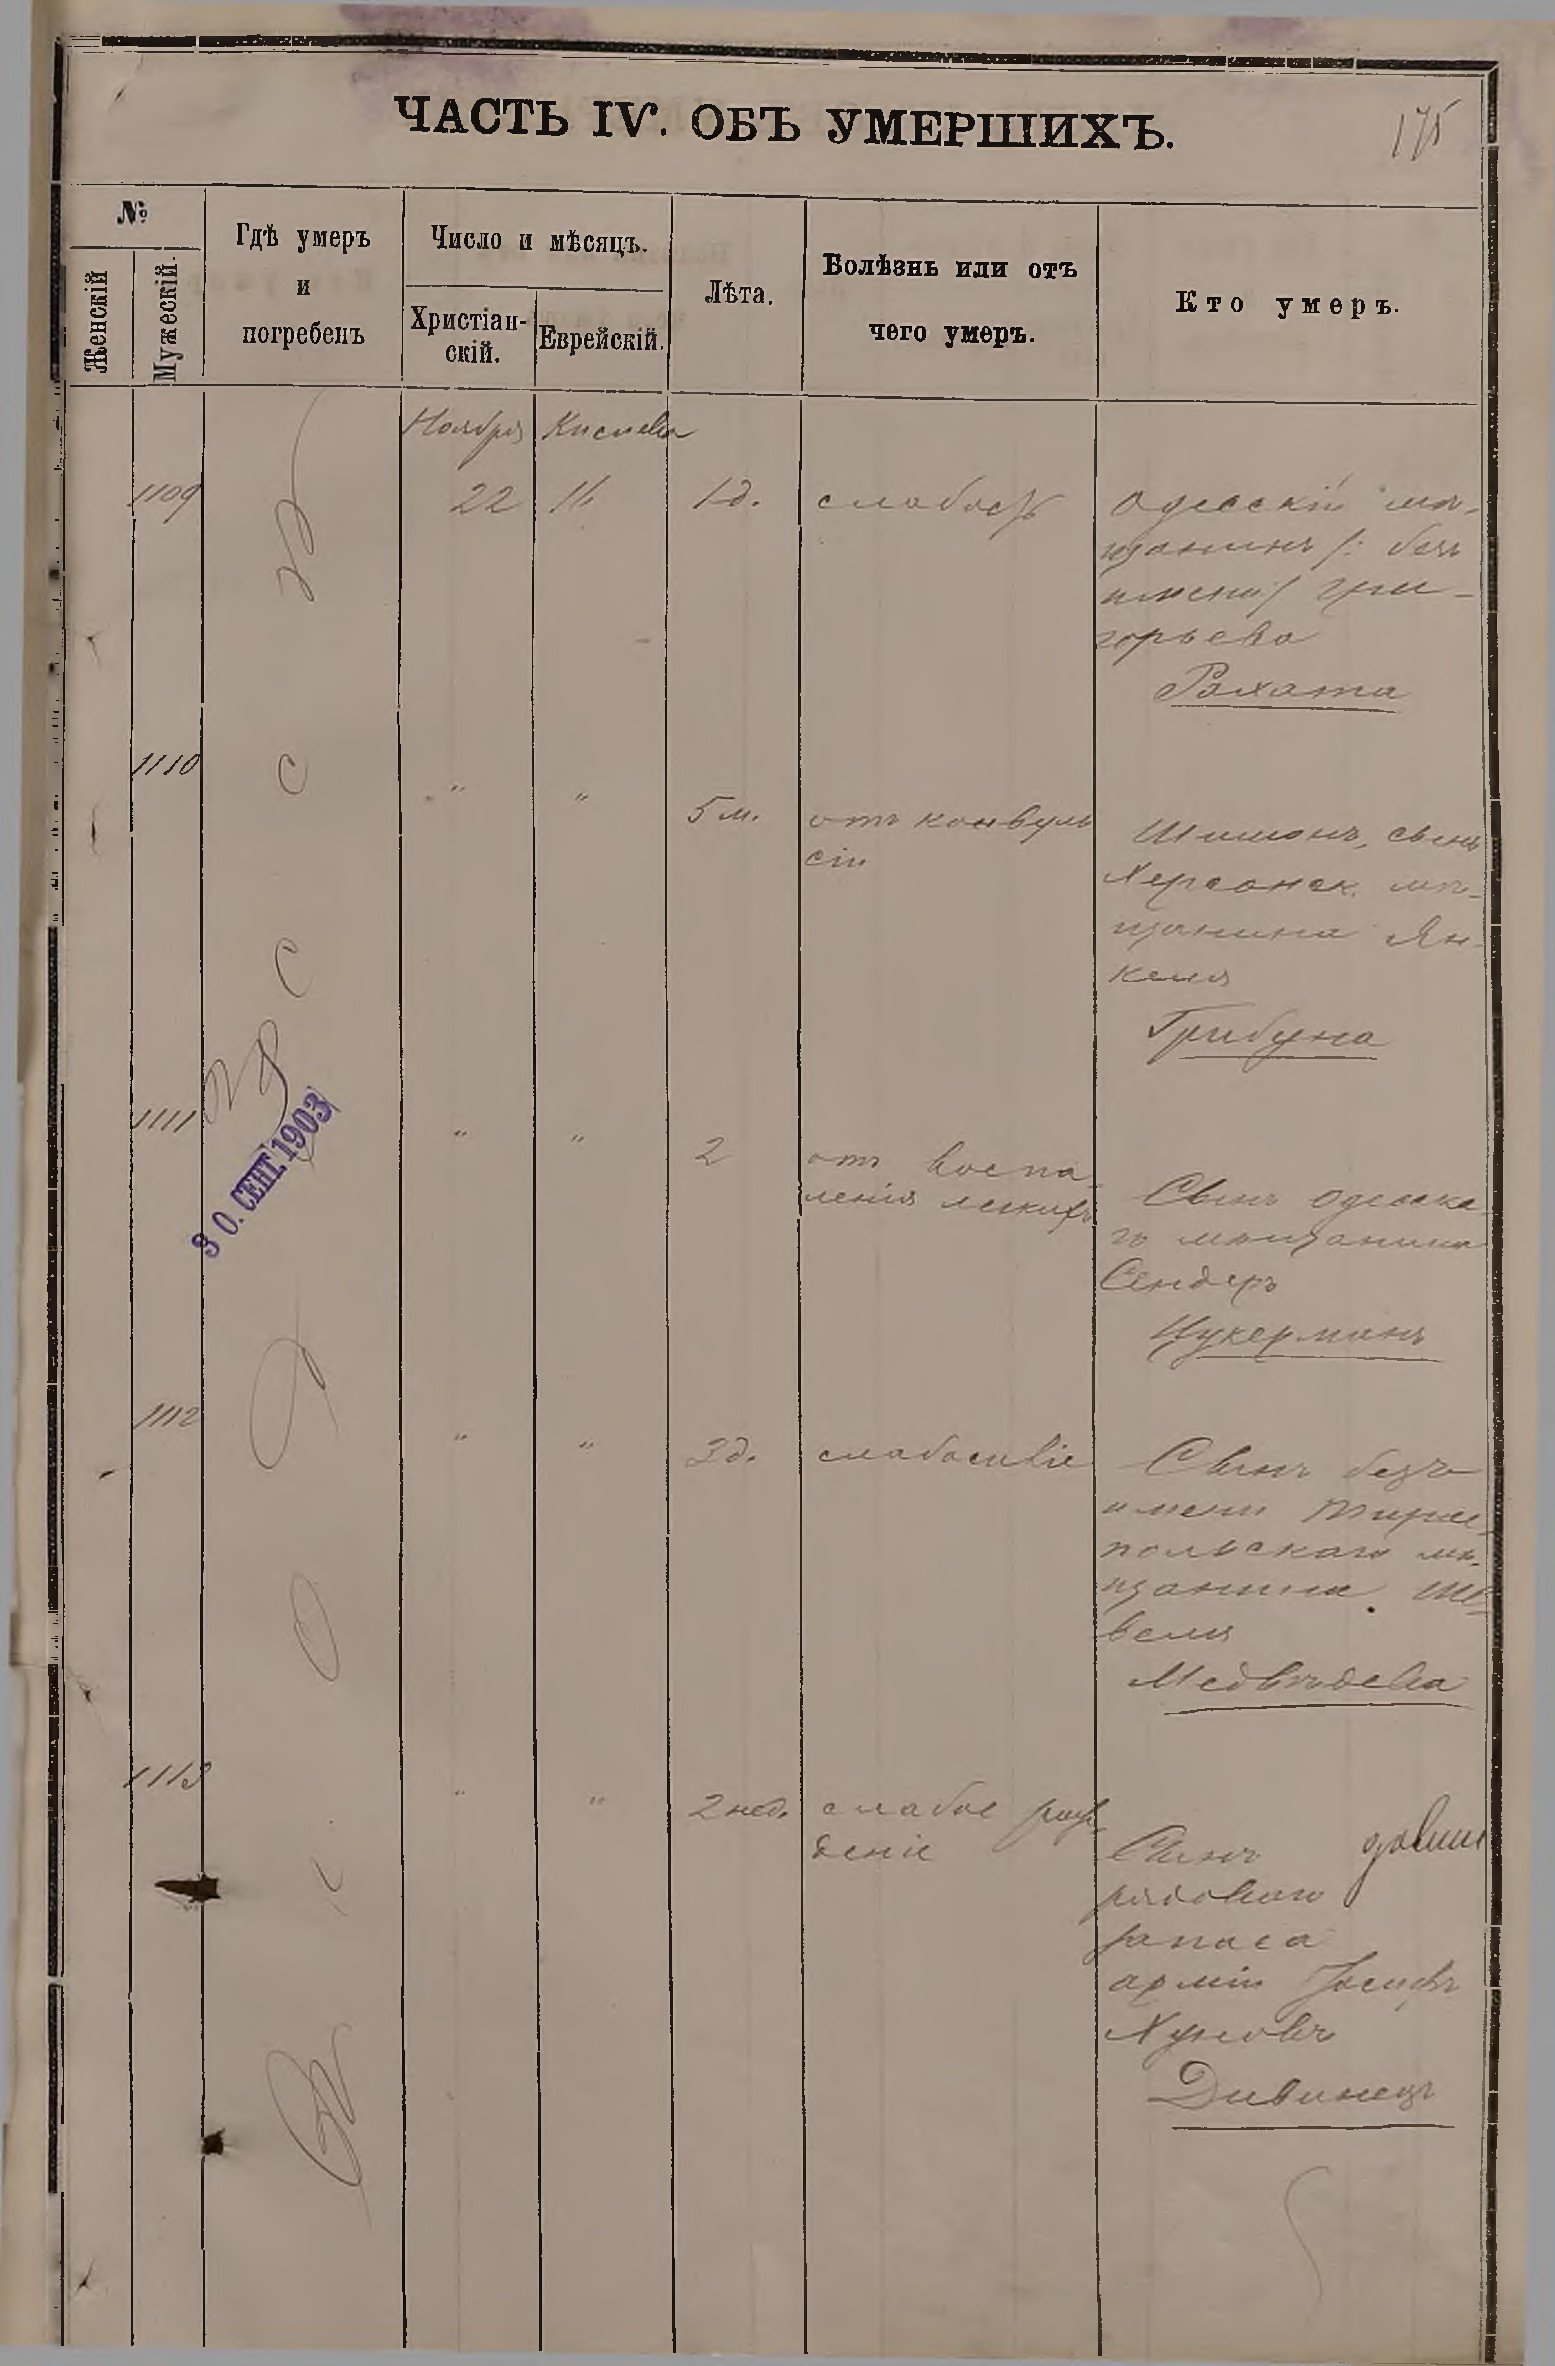 ЧАСТЬ IV. ОБЪ УМЕРШИХЪ.
175
№
Женскій
Мужескій.
Гдѣ умеръ
и
погребенъ
Число и мѣсяцъ.
Христіан-
скій.
Еврейскій.
Лѣта.
Болѣзнь или отъ
чего умеръ.
Кто умеръ.
Ноября Кислева
1109 22 1д. слабость
Одесскій мѣ-
щанинъ /: безъ
имени/ Гри-
горьева
Рахата
1110 " " 5 м. отъ конвуль
сіи
Шимонъ, сынъ
Херсонск. мѣ-
щанина Ян-
келя
Трибуна
1111 " " 2 отъ воспа-
ленія легкихъ
Сынъ одесска-
го мѣщанина
Сендеръ
Цукерманъ
30. СЕНТ. 1903
1112 " " 3д. слабосиліе
Сынъ безъ
имени Тирас-
польскаго мѣ-
щанина Ше-
веля
Медвѣдева
1113 " " 2 нед. слабое рож-
деніе
Сынъ
рядоваго
запаса
арміи Іосифъ
Хуновъ
Дивинецъ